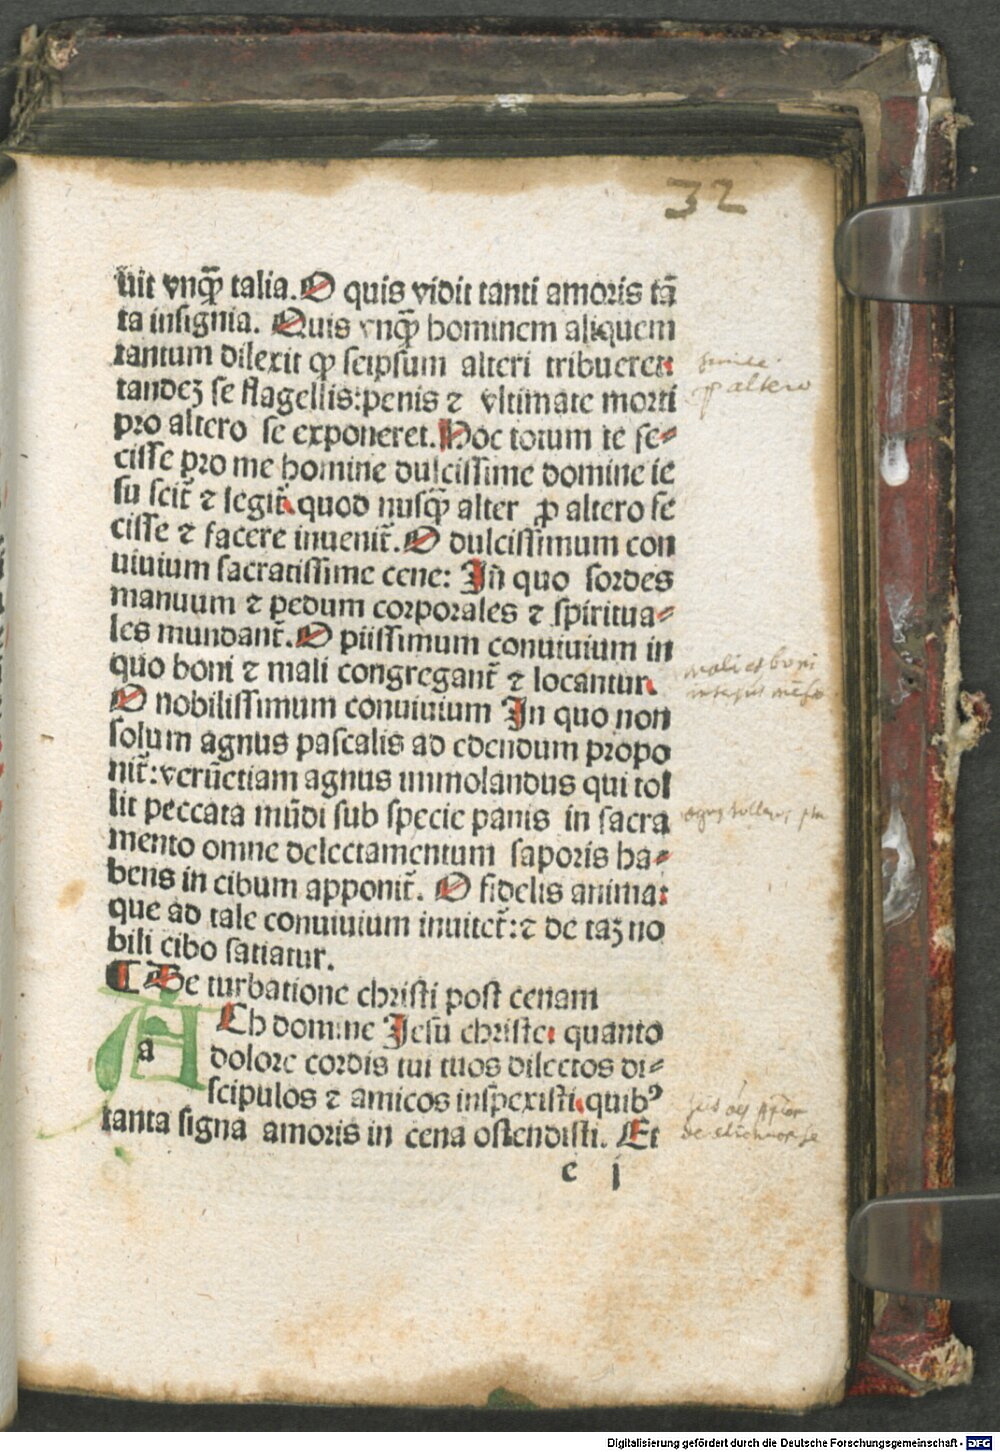 32
uit vnq̃ꝫ talia. O quis vidit tanti amoris tã
ta insignia. Quis vnq̃ꝫ hominem aliquem
tantum dilexit ꝙ seipsum alteri tribueret:
tandeꝫ se flagellis: penis ⁊ vltimate morti
pro altero se exponeret. Hoc totum te fe⸗
cisse pro me homine dulcissime domine ie
su scit̃ ⁊ legit̃. quod nusq̃ꝫ alter ꝓ altero fe
cisse ⁊ facere inuenit̃. O dulcissimum con
uiuium sacratissime cene: In̄ quo sordes
manuum ⁊ pedum corporales ⁊ spiritua⸗
les mundant̃. O piissimum conuiuium in
quo boni ⁊ mali congregant̃ ⁊ locantur.
O nobilissimum conuiuium In quo non
solum agnus pascalis ad edendum propo
nit̃: verũetiam agnus immolandus qui tol
lit peccata mũdi sub specie panis in sacra
mento omne delectamentum saporis ha⸗
bens in cibum apponit̃. O fidelis anima:
que ad tale conuiuium inuitet̃: ⁊ de taꝫ no
bili cibo satiatur.
¶ De turbatione christi post cenam
A a Ch domine Jesu christe: quanto
dolore cordis tui tuos dilectos di⸗
scipulos ⁊ amicos insp̃existi. quibꝰ
tanta signa amoris in cena ostendisti. Et
e j
altero
mali et boni
Digitalisierung gefördert durch die Deutsche Forschungsgemeinschaft - DFG